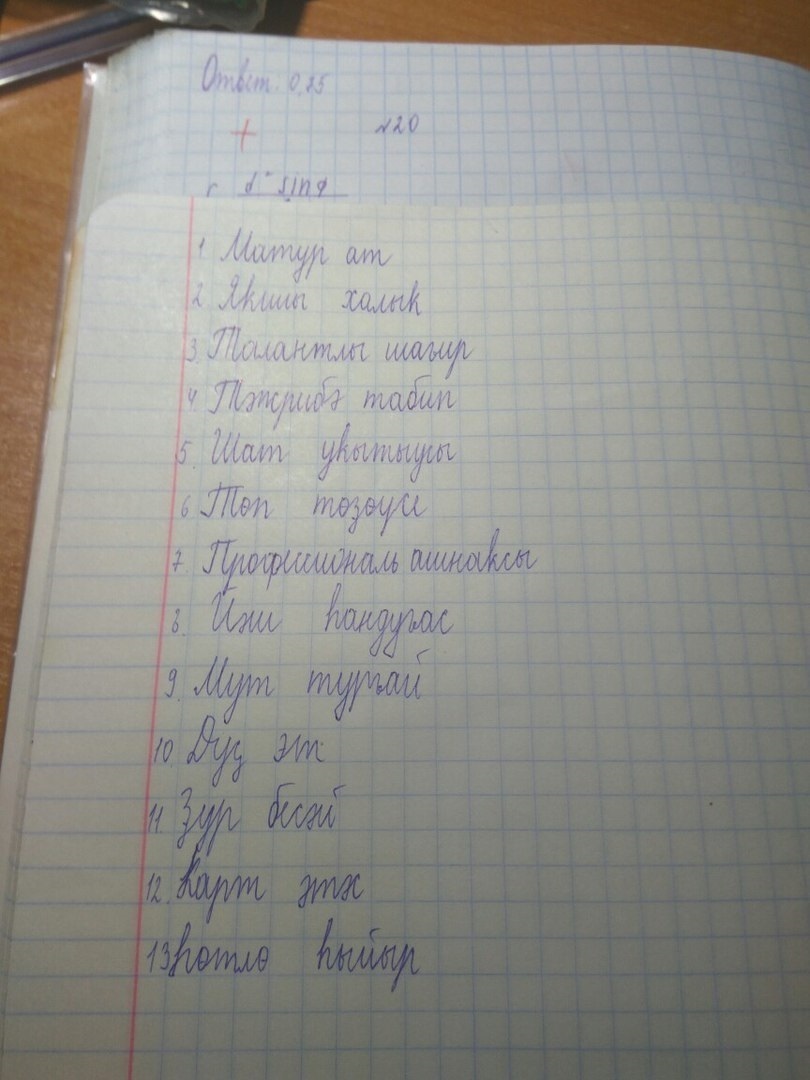 Ответ. 0,25
№20
1 Матур ат
2 Якшы халык
3. Талантлы шағир
4. Тәжрибә табип
5. Шат уҡытыусы
6 Төп төҙөүсе
7. Профессиональ ашнаксы
8. Йәш һандуғас
9. Мут турғай
10 Дуҫ эт
11 Зур бесәй
12. Карт әтәс
13 һөтлө һыйыр